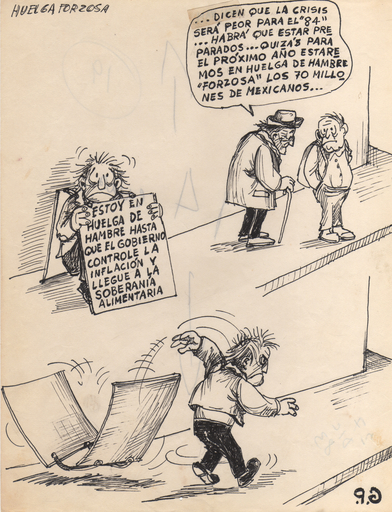 HUELGA FORZOSA
... DICEN QUE LA CRISIS
SERÁ PEOR PARA EL "84"
... HABRÁ QUE ESTAR PRE
PARADOS... QUIZÁS PARA
EL PRÓXIMO AÑO ESTARE
MOS EN HUELGA DE HAMBRE
"FORZOSA" LOS 70 MILLO
NES DE MEXICANOS...
ESTOY EN
HUELGA DE
HAMBRE HASTA
QUE EL GOBIERNO
CONTROLE LA
INFLACIÓN Y
LLEGUE A LA
SOBERANÍA
ALIMENTARIA